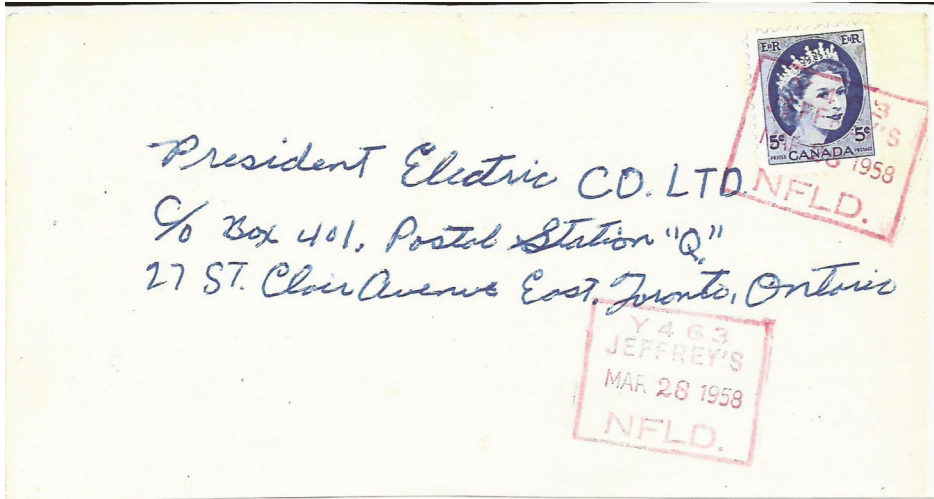 EIIR EIIR
5¢ 5¢
POSTES CANADA POSTAGE
JEFFREY'S
1958
NFLD.
President Electric CO. LTD.
C/o Box 401, Postal Station "Q,"
27 ST. Clair Avenue East, Toronto, Ontario
Y463
JEFFREY'S
MAR 28 1958
NFLD.